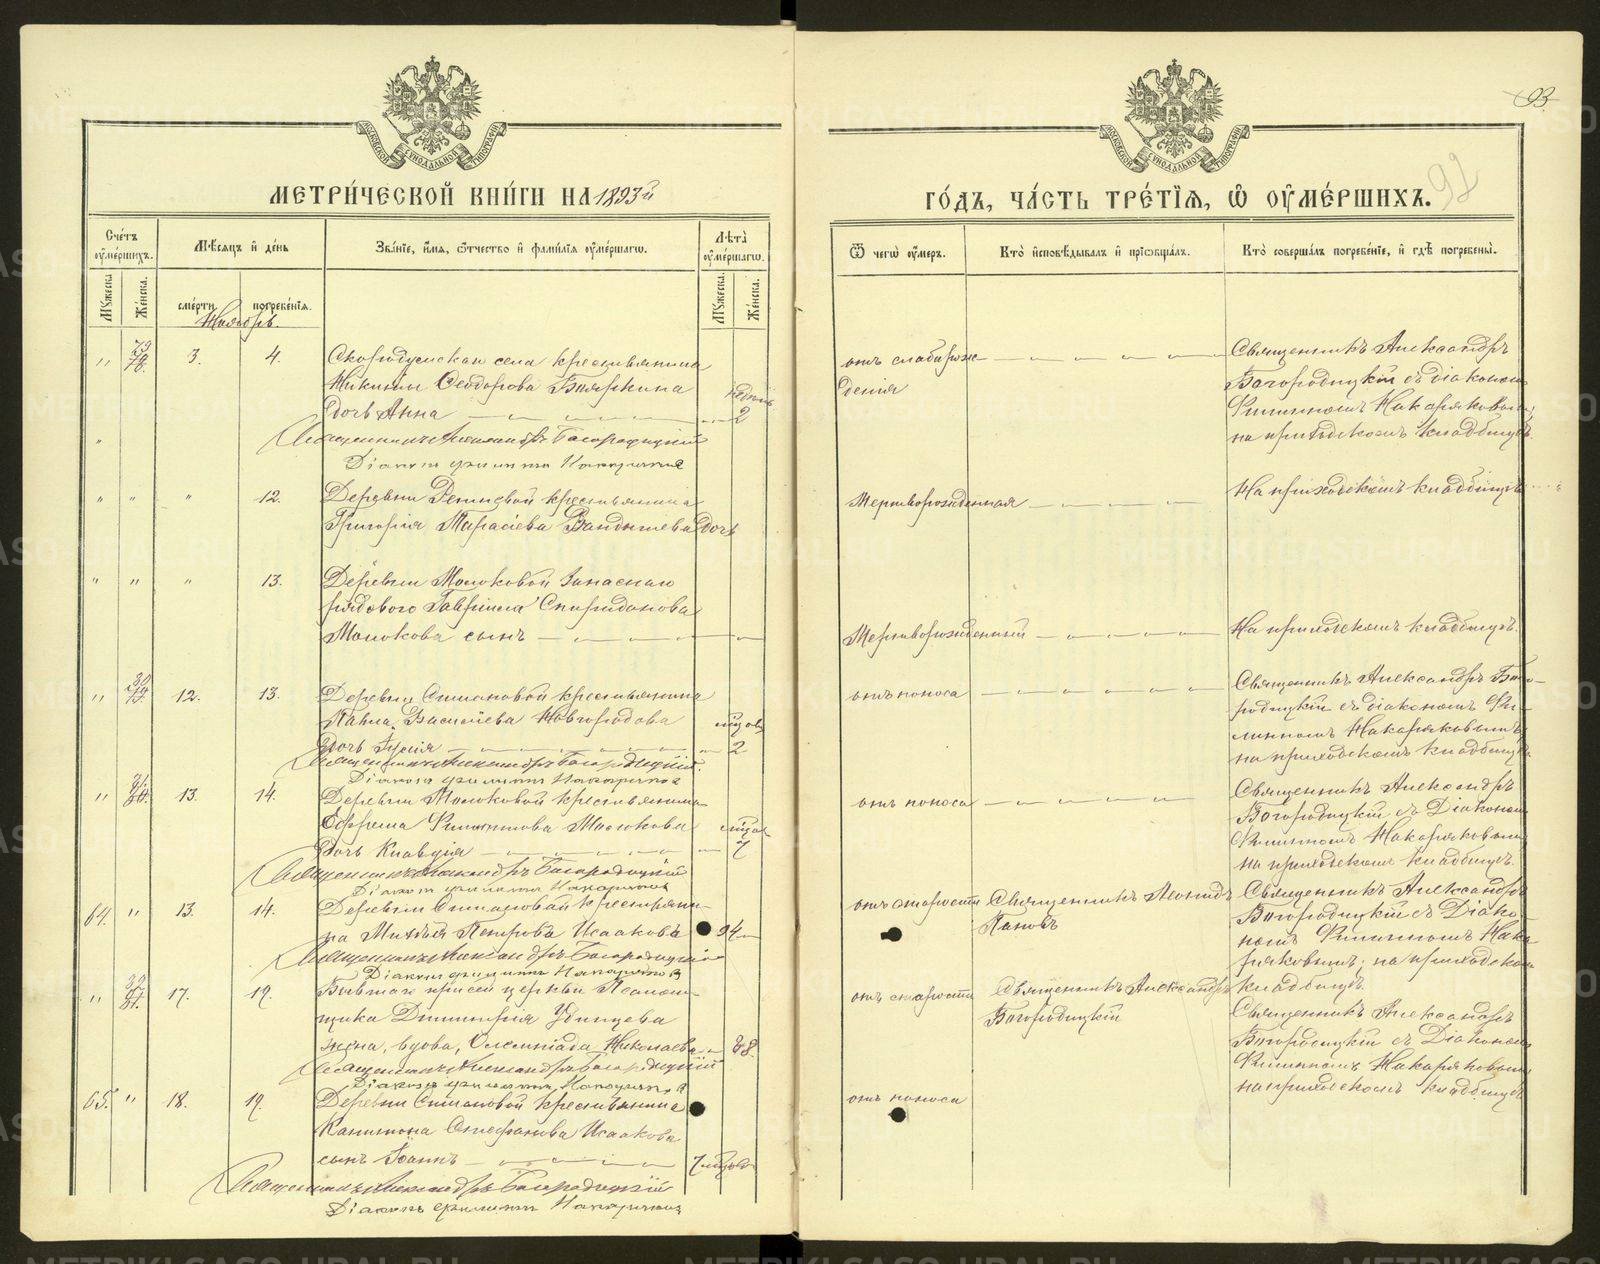 МЕТРИ́ЧЕСКОЙ КНИ́ГИ НА 1893й
Сче́тъ оу҆ме́ршихъ.
Мѣ́сяцъ и҆ де́нь
Зва́нїе, и҆́мя, ѻ҆́тчество и҆ фами́лїя оу҆ме́ршагѡ.
Лѣ́та оу҆ме́ршагѡ.
Му́жеска
Же́нска.
сме́рти.
погребе́нїя.
Му́жеска.
Же́нска.
Ноябрь.
" 79 78. 3. 4. Скородумскаго села крестьянина
Никиты Ѳеодорова Бояркина недѣль
дочь Анна 2
Священникъ Александръ Богородицкій
Діаконъ Филиппъ Накаряковъ
" " " 12. Деревни крестьянина
Григорія Тарасіева Вандышева дочь
" " " 13. Деревни Молоковой Запаснаго
рядового Гавріила Спиридонова
Молокова сынъ
" 80 79. 12. 13. Деревни Симановой крестьянина
Павла Васильева Новгородова мѣсяц.
дочь Іулія 2
Священникъ Александръ Богородицкій
Діаконъ Филиппъ Накаряковъ
" 81 80. 13. 14. Деревни Молоковой крестьянина
Ефрема Филиппова Молокова мѣсяц.
дочь Клавдія 7
Священникъ Александръ Богородицкій
Діаконъ Филиппъ Накаряковъ
64. " 13. 14. Деревни Симановой крестьяни-
на Михей Петровъ Исааковъ 94
Священникъ Александръ Богородицкій
Діаконъ Филиппъ Накаряковъ
" 82 81. 17. 19. Бывшаго при сей церкви Псалом-
щика Димитрія Удинцева
жена, вдова, Олимпіада Николаева 88.
Священникъ Александръ Богородицкій
Діаконъ Филиппъ Накаряковъ
65. " 18. 19. Деревни Симановой крестьянина
Капитона Стефанова Исаакова
сынъ Іоаннъ 7 мѣсяц.
Священникъ Александръ Богородицкій
Діаконъ Филиппъ Накаряковъ
93
92
ГО́ДЪ, ЧА́СТЬ ТРЕ́ТЇЯ, Ѡ҆ ОУ҆МЕ́РШИХЪ.
Ѿ чегѡ̀ оу҆́меръ.
Кто̀ и҆сповѣ́дывалъ и҆ прїѡбща́лъ.
Кто̀ соверша́лъ погребе́нїе, и҆ гдѣ̀ погребены̀.
отъ слаборож- Священникъ Александръ
денія Богородицкій съ діакономъ
Филиппомъ Накаряковымъ;
на приходскомъ кладбищѣ.
Мертворожденная На приходскомъ кладбищѣ
Мертворожденный На приходскомъ кладбищѣ.
отъ поноса Священникъ Александръ Бого-
родицкій съ діакономъ Фи-
липпомъ Накаряковымъ;
на приходскомъ кладбищѣ
отъ поноса Священникъ Александръ
Богородицкій съ Діакономъ
Филиппомъ Накаряковымъ
на приходскомъ кладбищѣ.
отъ старости Священникъ Леонидъ Священникъ Александръ
Поповъ Богородицкій съ Діако-
номъ Филиппомъ Нака-
ряковымъ; на приходском
отъ старости Священникъ Александръ кладбищѣ.
Богородицкій Священникъ Александръ
Богородицкій съ Діакономъ
Филиппомъ Накаряковымъ
отъ поноса на приходскомъ кладбищѣ